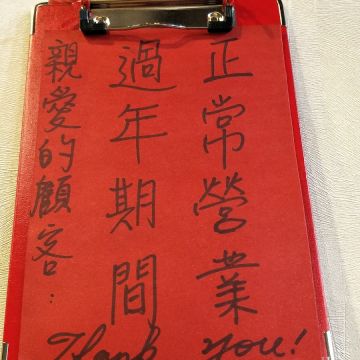 親愛的顧客：
過年期間
正常營業
Thank you!